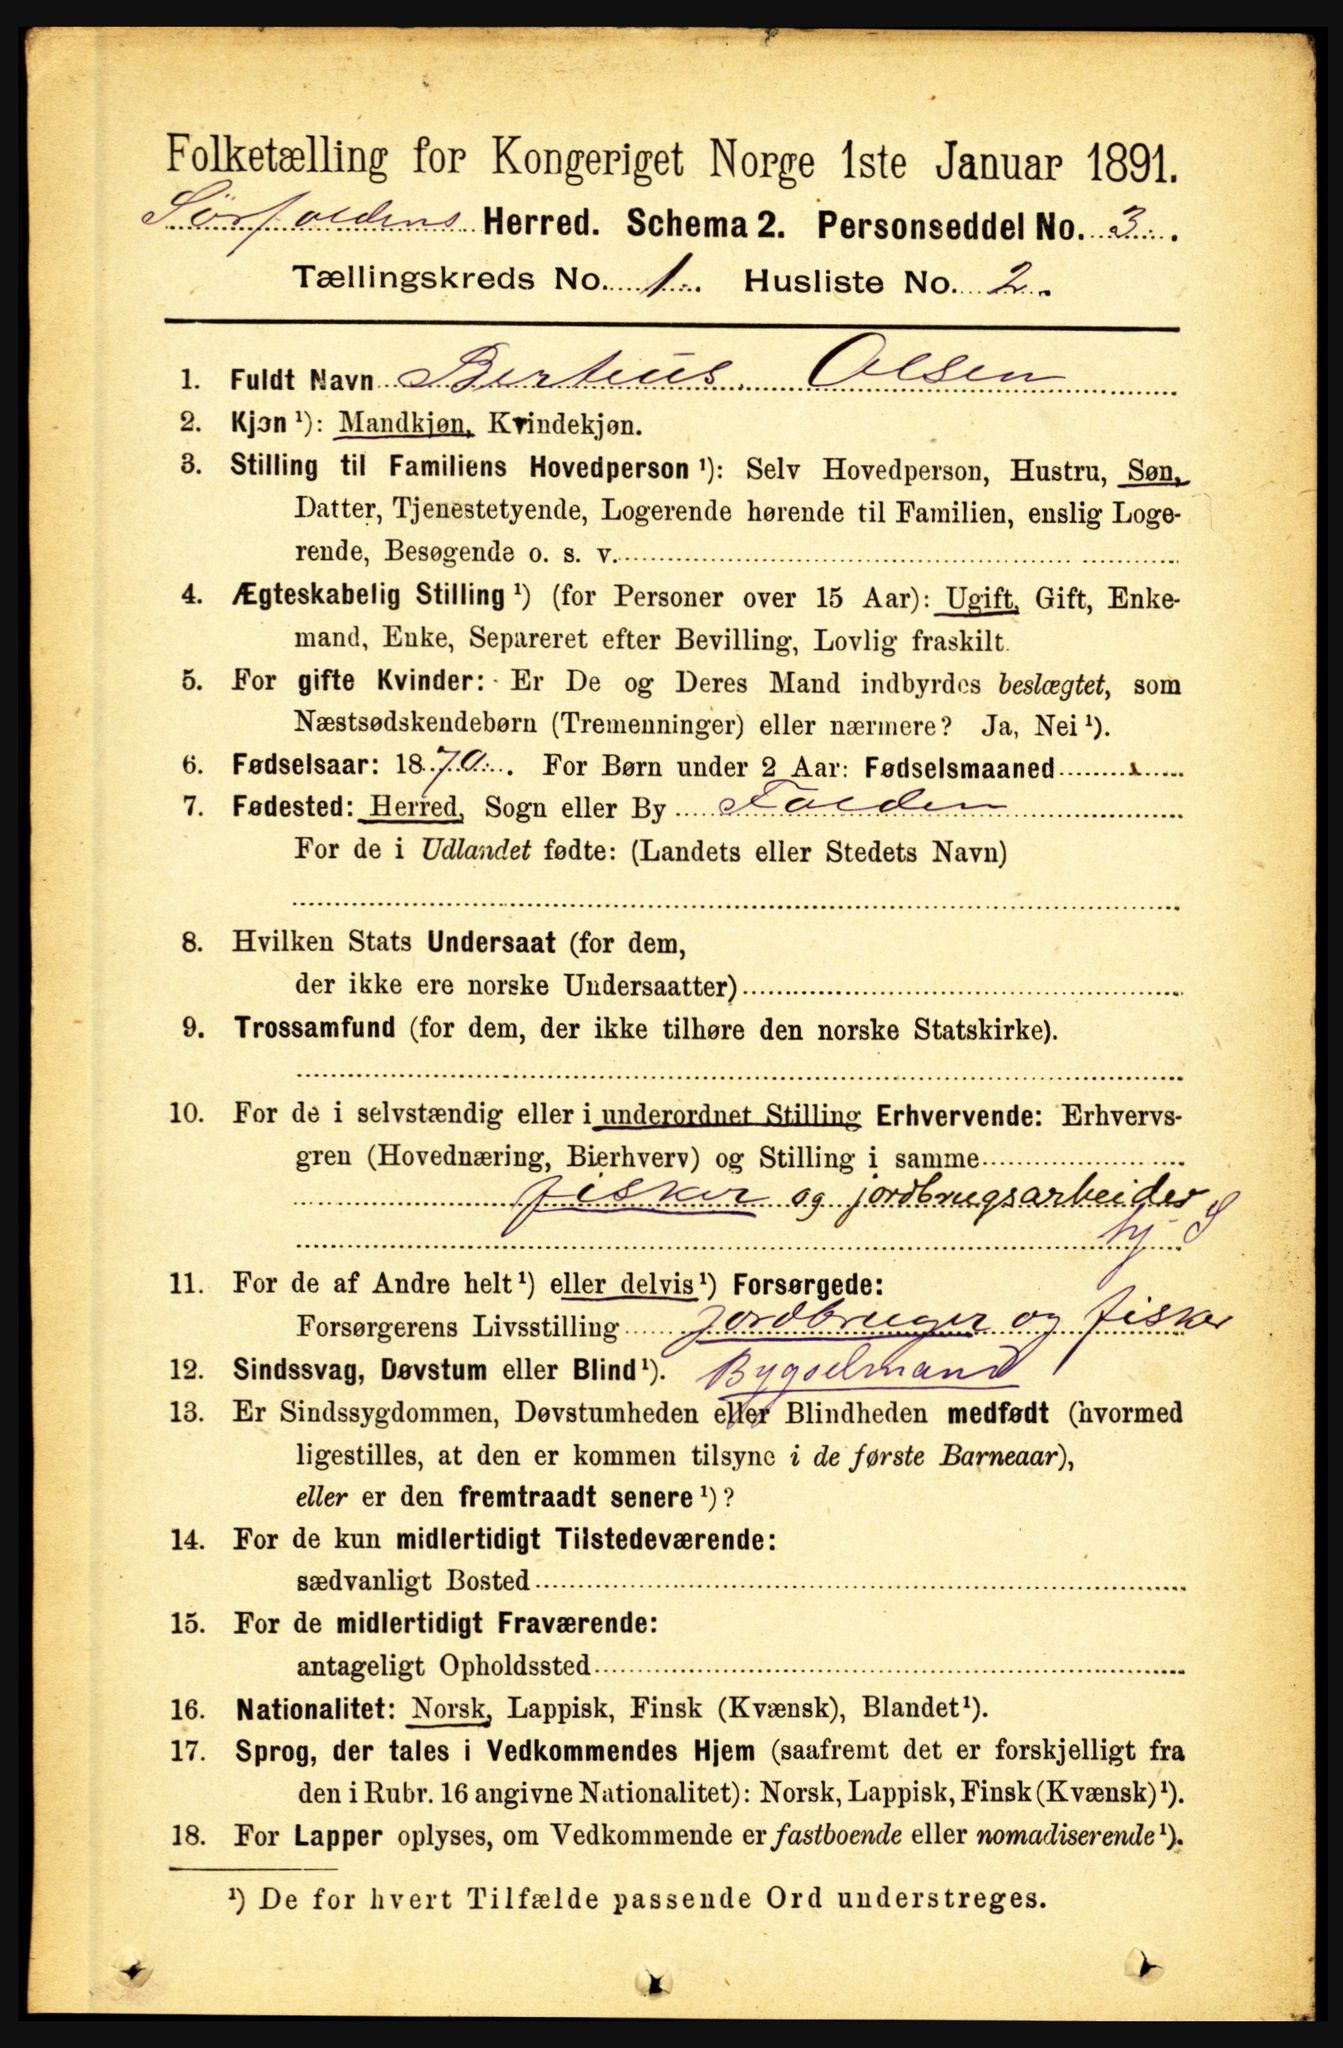 Folketælling for Kongeriget Norge 1ste Januar 1891.
Sørfoldens Herred. Schema 2. Personseddel No. 3.
Tællingskreds No. 1. Husliste No. 2.
1. Fuldt Navn Berteus Olsen
2. Kjøn¹): Mandkjøn, Kvindekjøn.
3. Stilling til Familiens Hovedperson¹): Selv Hovedperson, Hustru, Søn,
Datter, Tjenestetyende, Logerende hørende til Familien, enslig Loge-
rende, Besøgende o. s. v.
4. Ægteskabelig Stilling¹) (for Personer over 15 Aar): Ugift, Gift, Enke-
mand, Enke, Separeret efter Bevilling, Lovlig fraskilt.
5. For gifte Kvinder: Er De og Deres Mand indbyrdes beslægtet, som
Næstsødskendebørn (Tremenninger) eller nærmere? Ja, Nei¹).
6. Fødselsaar: 1870. For Børn under 2 Aar: Fødselsmaaned
7. Fødested: Herred, Sogn eller By Folden
For de i Udlandet fødte: (Landets eller Stedets Navn)
8. Hvilken Stats Undersaat (for dem,
der ikke ere norske Undersaatter)
9. Trossamfund (for dem, der ikke tilhøre den norske Statskirke).
10. For de i selvstændig eller i underordnet Stilling Erhvervende: Erhvervs-
gren (Hovednæring, Bierhverv) og Stilling i samme
fisker og jordbrugsarbeider
hj S
11. For de af Andre helt¹) eller delvis¹) Forsørgede:
Forsørgerens Livsstilling jordbruger og fisker
12. Sindssvag, Døvstum eller Blind¹). Bygselmand
13. Er Sindssygdommen, Døvstumheden eller Blindheden medfødt (hvormed
ligestilles, at den er kommen tilsyne i de første Barneaar),
eller er den fremtraadt senere¹)?
14. For de kun midlertidigt Tilstedeværende:
sædvanligt Bosted
15. For de midlertidigt Fraværende:
antageligt Opholdssted
16. Nationalitet: Norsk, Lappisk, Finsk (Kvænsk), Blandet¹).
17. Sprog, der tales i Vedkommendes Hjem (saafremt det er forskjelligt fra
den i Rubr. 16 angivne Nationalitet): Norsk, Lappisk, Finsk (Kvænsk)¹).
18. For Lapper oplyses, om Vedkommende er fastboende eller nomadiserende¹).
¹) De for hvert Tilfælde passende Ord understreges.